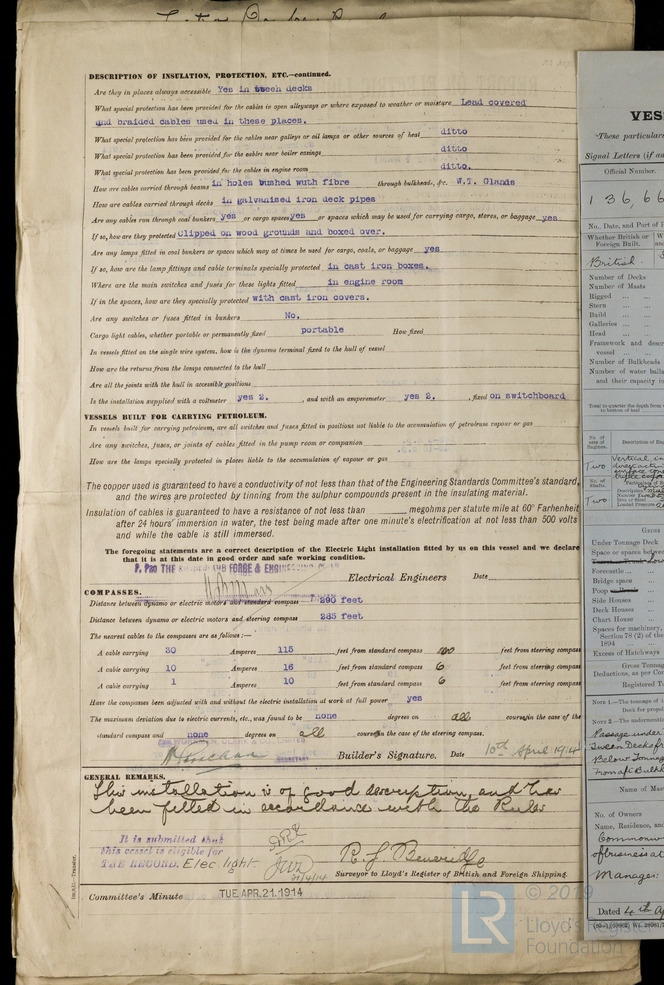 DESCRIPTION OF INSULATION, PROTECTION, ETC.—continued.
Are they in places always accessible Yes in tween decks
What special protection has been provided for the cables in open alleyways or where exposed to weather or moisture Lead covered
and braided cables used in these places.
What special protection has been provided for the cables near galleys or oil lamps or other sources of heat ditto
What special protection has been provided for the cables near boiler casings ditto
What special protection has been provided for the cables in engine room ditto.
How are cables carried through beams in holes bushed wuth fibre through bulkheads, &c. W.T. Glands
How are cables carried through decks in galvanised iron deck pipes
Are any cables run through coal bunkers yes or cargo spaces yes or spaces which may be used for carrying cargo, stores, or baggage yes
If so, how are they protected Clipped on wood grounds and boxed over.
Are any lamps fitted in coal bunkers or spaces which may at times be used for cargo, coals, or baggage yes
If so, how are the lamp fittings and cable terminals specially protected in cast iron boxes.
Where are the main switches and fuses for these lights fitted in engine room
If in the spaces, how are they specially protected with cast iron covers.
Are any switches or fuses fitted in bunkers No.
Cargo light cables, whether portable or permanently fixed portable How fixed
In vessels fitted on the single wire system, how is the dynamo terminal fixed to the hull of vessel
How are the returns from the lamps connected to the hull
Are all the joints with the hull in accessible positions
Is the installation supplied with a voltmeter yes 2. , and with an amperemeter yes 2. , fixed on switchboard
VESSELS BUILT FOR CARRYING PETROLEUM.
In vessels built for carrying petroleum, are all switches and fuses fitted in positions not liable to the accumulation of petroleum vapour or gas
Are any switches, fuses, or joints of cables fitted in the pump room or companion
How are the lamps specially protected in places liable to the accumulation of vapour or gas
The copper used is guaranteed to have a conductivity of not less than that of the Engineering Standards Committee's standard,
and the wires are protected by tinning from the sulphur compounds present in the insulating material.
Insulation of cables is guaranteed to have a resistance of not less than megohms per statute mile at 60° Farhenheit
after 24 hours' immersion in water, the test being made after one minute's electrification at not less than 500 volts
and while the cable is still immersed.
The foregoing statements are a correct description of the Electric Light installation fitted by us on this vessel and we declare
that it is at this date in good order and safe working condition.
P. Pro THE FORGE & ENGINEERING
Electrical Engineers Date
COMPASSES.
Distance between dynamo or electric motors and standard compass 290 feet
Distance between dynamo or electric motors and steering compass 285 feet
The nearest cables to the compasses are as follows:—
A cable carrying 30 Amperes 115 feet from standard compass 100 feet from steering compass
A cable carrying 10 Amperes 16 feet from standard compass 6 feet from steering compass
A cable carrying 1 Amperes 10 feet from standard compass 6 feet from steering compass
Have the compasses been adjusted with and without the electric installation at work at full power yes
The maximum deviation due to electric currents, etc., was found to be none degrees on all course in the case of the
standard compass and none degrees on all course in the case of the steering compass.
SECRETARY
Builder's Signature. Date 10th April 1914
GENERAL REMARKS.
This installation is of good description, and has
been fitted in accordance with the Rules
It is submitted that
this vessel is eligible for
THE RECORD. Elec. light
21/4/14
R. J. Beveridge
Surveyor to Lloyd's Register of British and Foreign Shipping.
Committee's Minute TUE. APR. 21. 1914
VES
These particulars
Signal Letters (if a
Official Number.
136,66
No., Date, and Part of
Whether British or
Foreign Built.
British
Number of Decks
Number of Masts
Rigged
Stern
Build
Galleries
Head
Framework and descr
vessel
Number of Bulkheads
Number of water balla
and their capacity i
Total to quarter the depth from
to bottom of keel
No. of sets of Engines.
Description of Eng
Two
Vertical in
No. of Shafts.
Two
GROSS
Under Tonnage Deck
Space or spaces between
Forecastle
Bridge space
Poop
Side Houses
Deck Houses
Chart House
Spaces for machinery,
Section 78 (2) of the
1894
Excess of Hatchways
Gross Tonnag
Deductions, as per Con
Registered T
NOTE 1.—The tonnage of
Deck for propel
NOTE 2.—The undermenti
Passage under
Below Tonnag
Name of Mast
No. of Owners
Name, Residence, and
Commonw
of business at
Manager:
Dated 4th Ap
© 2019
LR
Lloyd's Register
Foundation